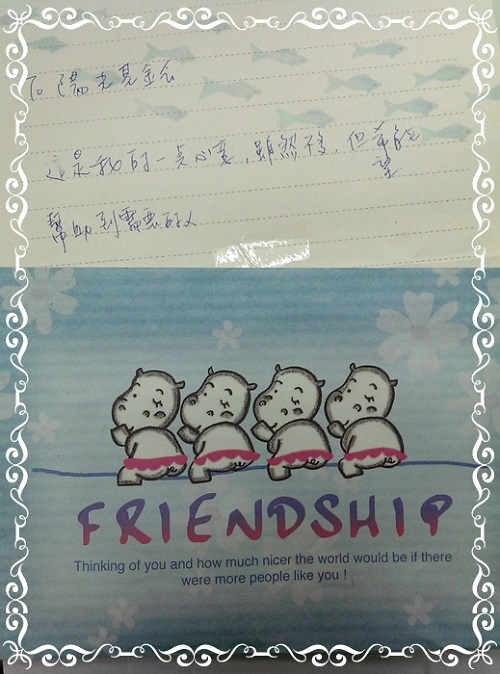 To 陽光基金会
這是我的一点心意，雖然不多，但希望能
幫助到需要的人
FRIENDSHIP
Thinking of you and how much nicer the world would be if there
were more people like you !